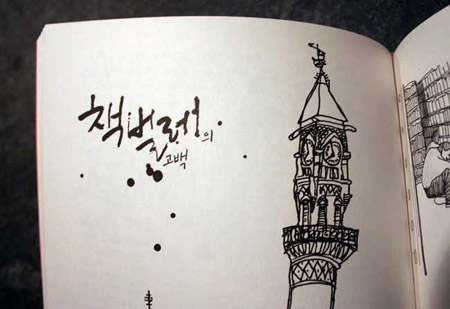 책벌레의
고백